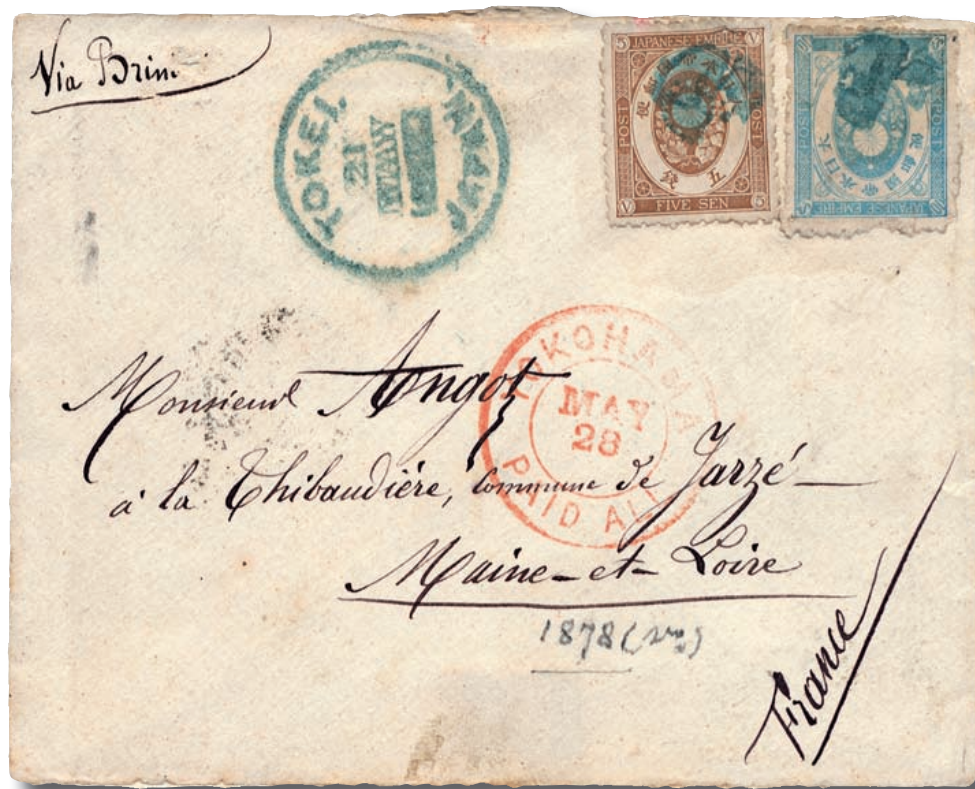 Via Brin
TOKEI.
JAPAN
21
MAY
5 JAPANESE EMPIRE V
POST
POST
五
錢
V FIVE SEN 5
POST
大日本帝國郵便
JAPANESE EMPIRE
YOKOHAMA
MAY
28
PAID ALL
Monsieur Angot
à la Thibaudière, commune de Jarzé
Maine-et-Loire
1878
France